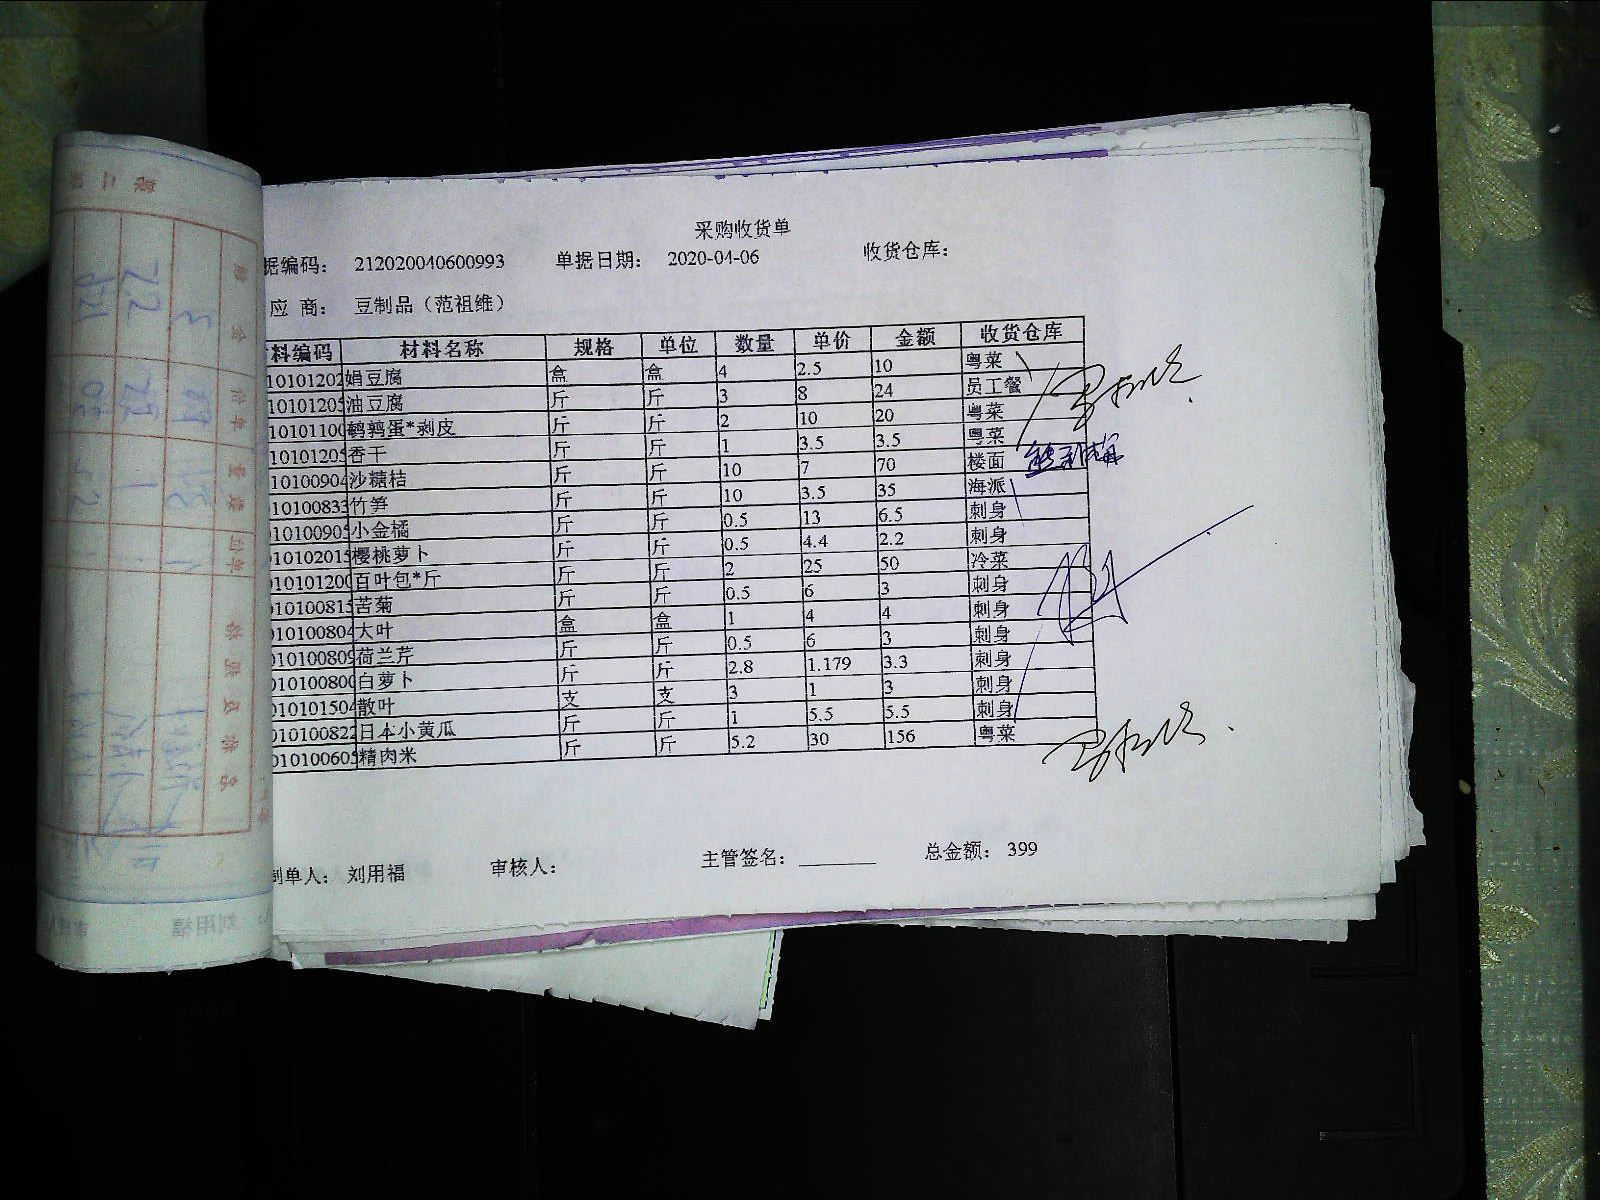 采购收货单
据编码： 212020040600993 单据日期： 2020-04-06 收货仓库：
应 商： 豆制品（范祖维）
料编码 材料名称 规格 单位 数量 单价 金额 收货仓库
10101202 娟豆腐 盒 盒 4 2.5 10 粤菜
10101205 油豆腐 斤 斤 3 8 24 员工餐
10101100 鹌鹑蛋*剥皮 斤 斤 2 10 20 粤菜
10101205 香干 斤 斤 1 3.5 3.5 粤菜
10100904 沙糖桔 斤 斤 10 7 70 楼面
10100833 竹笋 斤 斤 10 3.5 35 海派
010100905 小金橘 斤 斤 0.5 13 6.5 刺身
010102015 樱桃萝卜 斤 斤 0.5 4.4 2.2 刺身
010101200 百叶包*斤 斤 斤 2 25 50 冷菜
010100815 苦菊 斤 斤 0.5 6 3 刺身
010100804 大叶 盒 盒 1 4 4 刺身
010100809 荷兰芹 斤 斤 0.5 6 3 刺身
010100800 白萝卜 斤 斤 2.8 1.179 3.3 刺身
010101504 散叶 支 支 3 1 3 刺身
010100822 日本小黄瓜 斤 斤 1 5.5 5.5 刺身
010100605 精肉米 斤 斤 5.2 30 156 粤菜
制单人： 刘用福 审核人： 主管签名： 总金额： 399